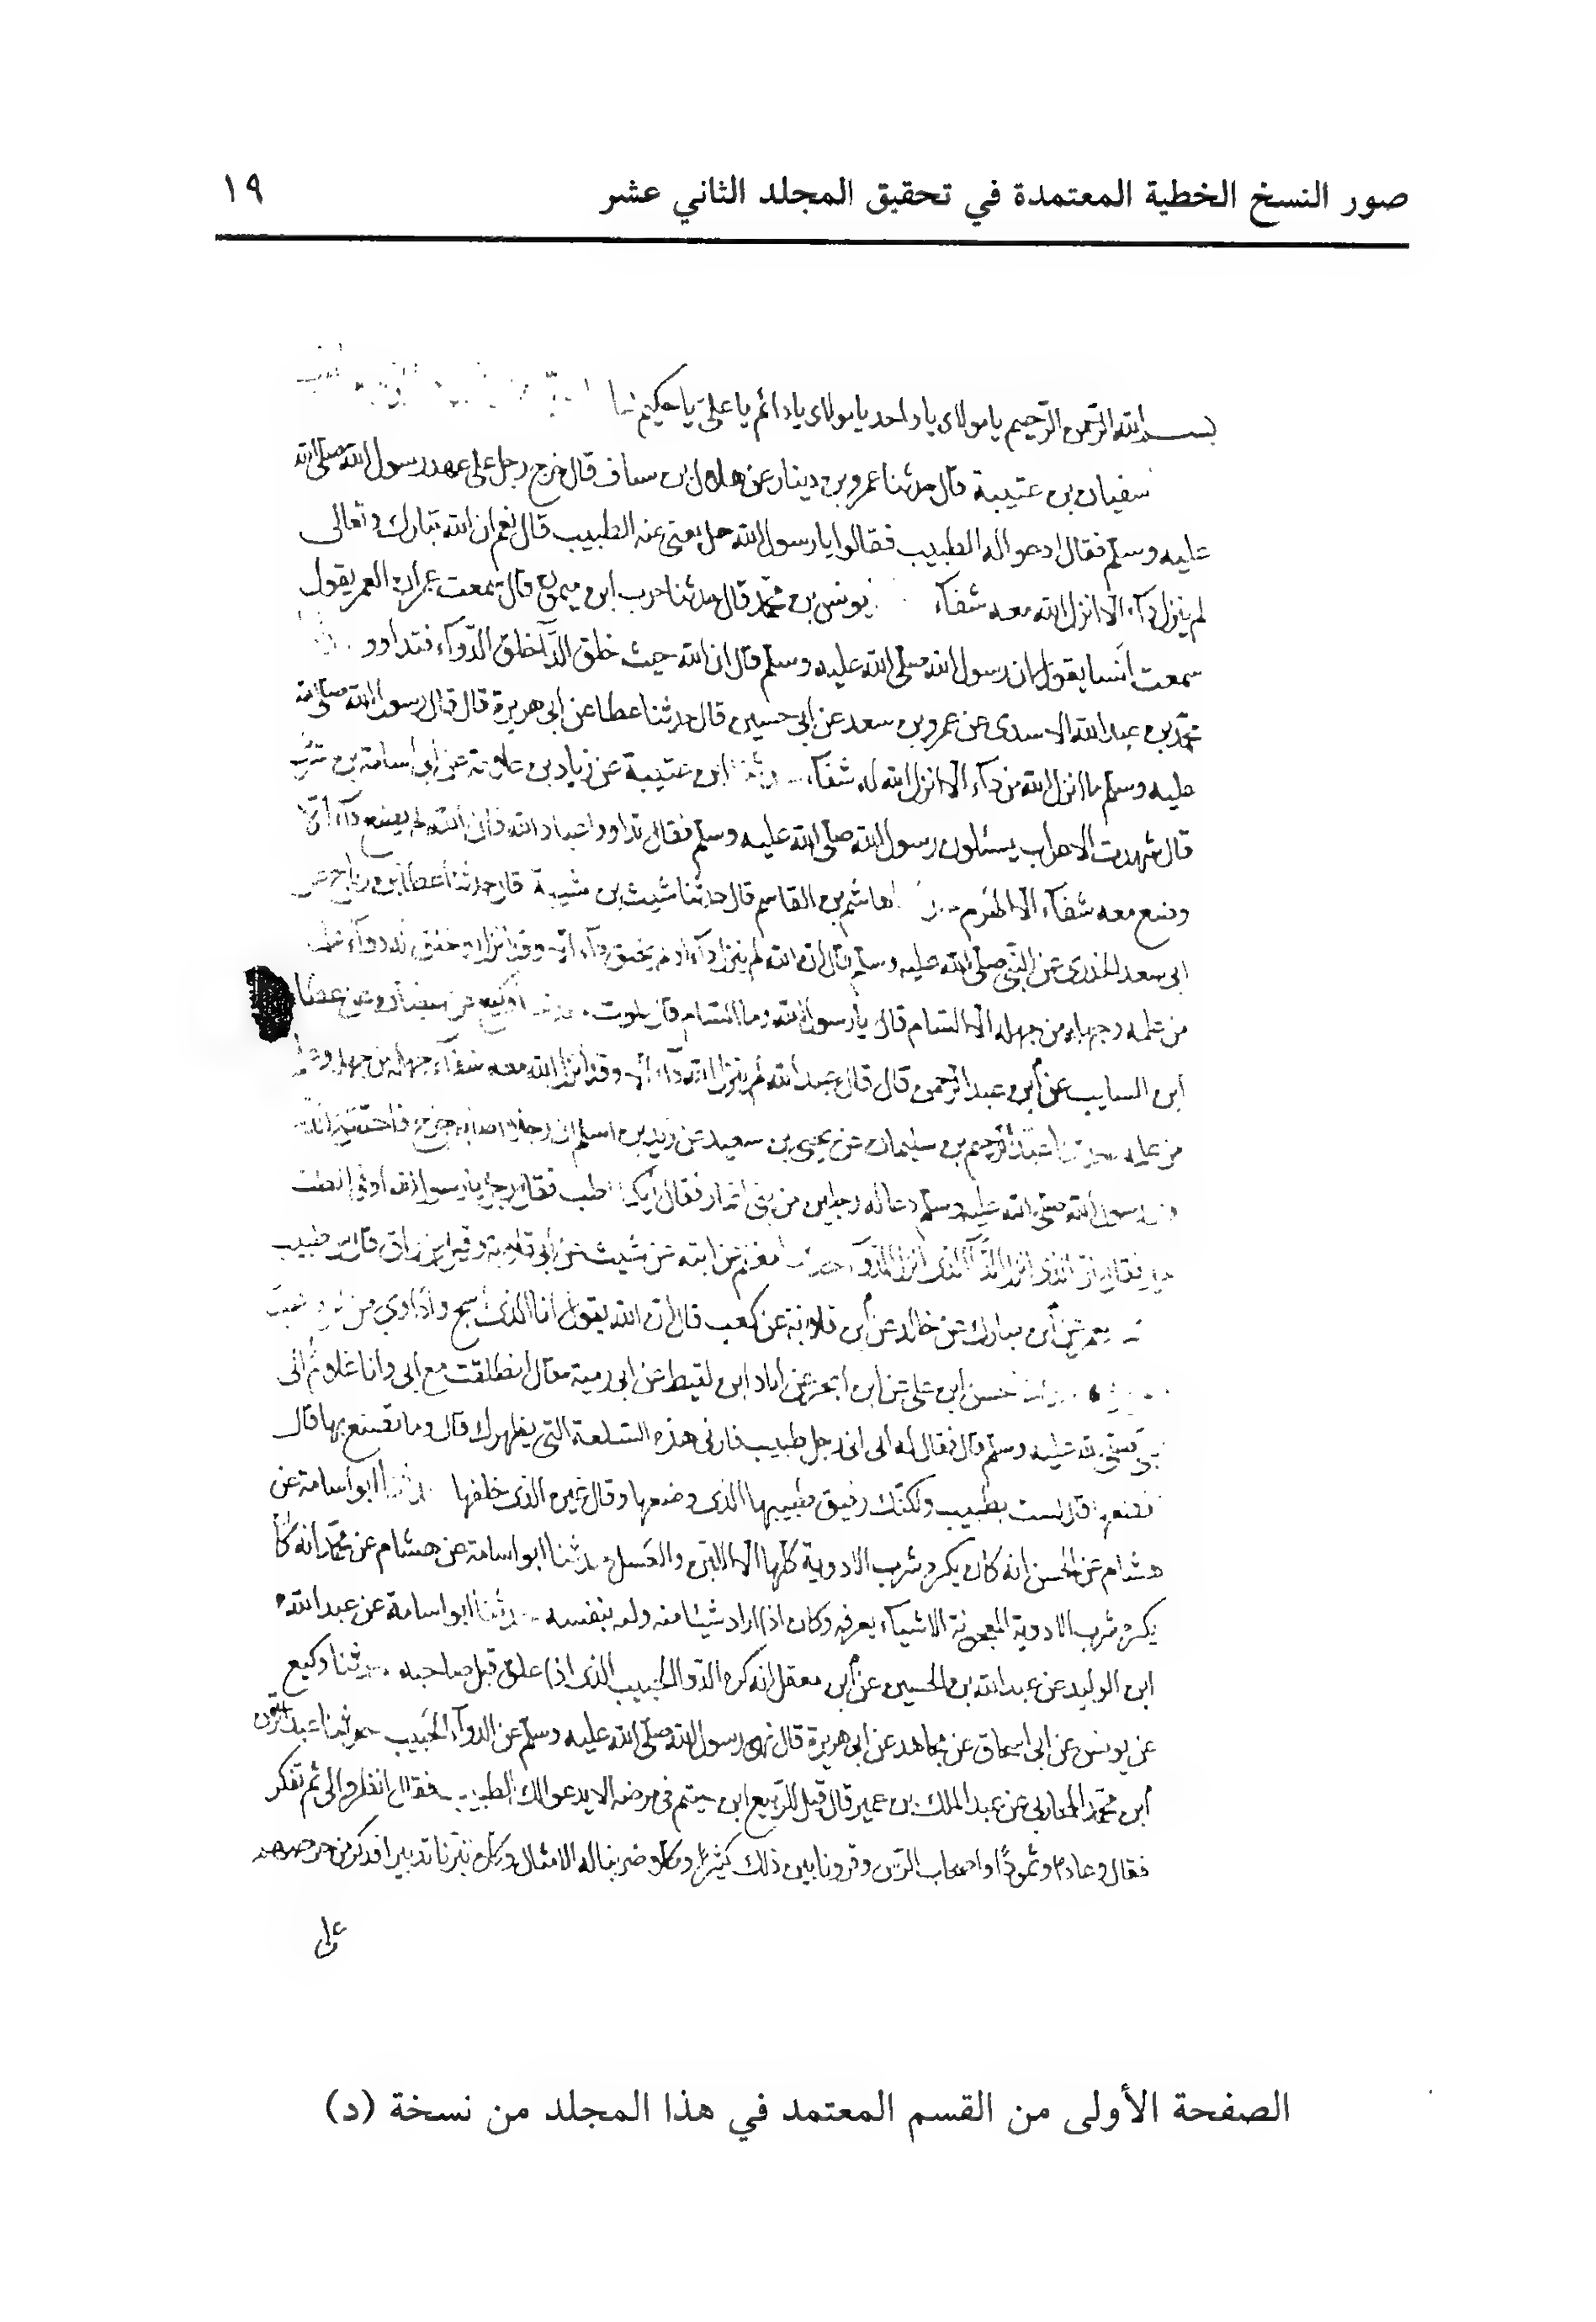 صور النسخ الخطية المعتمدة في تحقيق المجلد الثاني عشر ١٩
بسم الله الرحمن الرحيم يا مولاى يا واحد يا مولاى يا دائم يا على يا حكيم
سفيان بن عتيبة قال حدثنا عمرو بن دينار عن هلال بن سساف قال خرج رجل على عهد رسول الله صلى الله
عليه وسلم فقال ادعوا له الطبيب فقالوا يا رسول الله هل يعنى عنه الطبيب قال نعم ان الله تبارك وتعالى
لم ينزل دآء الا انزل الله معه شفآء يونس بن محمد قال حدثنا حرب ابن ميمون قال سمعت عمران العمر يقول
سمعت أنسا يقول ان رسول الله صلى الله عليه وسلم قال ان الله حيث خلق الدآ خلق الدوآء فتداوو
محمد بن عبد الله الاسدى عن عمرو بن سعد عن ابى حسين قال حدثنا عطا عن ابى هريرة قال قال رسول الله صلى الله
عليه وسلم ما انزل الله من دآء الا انزل الله له شفآء ابن عتيبة عن زياد بن علاوته عن ابى اسامة بن
قال شهدت الاعراب يسئلون رسول الله صلى الله عليه وسلم فقال تداووا عباد الله فان الله لم يضع دآء الا
وضع معه شفآء الا الهرم هاشم بن القاسم قال حدثنا شيث بن شيبة قال حدثنا عطا بن رباح عن
ابى سعد الخدرى عن النبى صلى الله عليه وسلم قال ان الله لم ينزل دآء او لم يخلق دآء الا وقد انزل او خلق له دوآء
من علمه وجهله من جهله الا السام قال يا رسول الله وما السام قال الموت وكيع عن سفيان عن عطا
ابن السايب عن أبى عبد الرحمن قال قال عبد الله لم ينزل الله دآء الا وقد أنزل الله معه شفآء جهله من جهله وعلمه
من علمه حدثنا عبد الرحيم بن سليمان عن يحيى بن سعيد عن زيد بن اسلم ان رجلا اصابه جرح فاحتقن
رسول الله صلى الله عليه وسلم دعا له رجلين من بنى انمار فقال أيكما اطب فقال رجل يا رسول الله اوفى الطب
فقال ان الذى انزل الدآ الذى انزل الدوآء
يعمر عن ابن مبارك عن خالد عن أبى قلابة عن كعب قال ان الله يقول انا الذى أصح وأداوى
حسن ابن على عن ابن ابجر عن اياد ابن لقيط عن ابى رمية قال انطلقت مع ابى وانا غلام الى
النبى صلى الله عليه وسلم قال فقال له ابى انى رجل طبيب فارنى هذه السلعة التى بظهرك قال وما تصنع بها قال
لست بطبيب ولكنك رفيق طبيبها الذى وضعها وقال غيره الذى خلقها حدثنا ابو اسامة عن
هشام عن الحسن انه كان يكره شرب الادوية كلها الا اللبن والعسل حدثنا ابو اسامة عن هشام عن محمد انه كا
يكره شرب الادوية المعجونة الا شيئا يعرفه وكان اذا اراد شيئا منه وليه بنفسه حدثنا ابو اسامة عن عبد الله
ابن الوليد عن عبد الله بن الحسين عن أبن معقل انه كره الدوا الخبيث الذى اذا علق قبل صاحبه حدثنا وكيع
عن يونس عن ابى اسحاق عن مجاهد عن ابى هريرة قال نهى رسول الله صلى الله عليه وسلم عن الدوآء الخبيث حدثنا عبد الرحمن
ابن محمد المحاربى عن عبد الملك بن عمير قال قيل للربيع ابن خيثم فى مرضه الا يدعوا لك الطبيب فقال انظروا الى ثم تفكر
فقال وعادا وثمودا واصحاب الرس وقرونا بين ذلك كثيرا وكلا ضربنا له الامثال وكلا تبرنا تتبيرا فذكر من حرصهم
على
الصفحة الأولى من القسم المعتمد في هذا المجلد من نسخة (د)